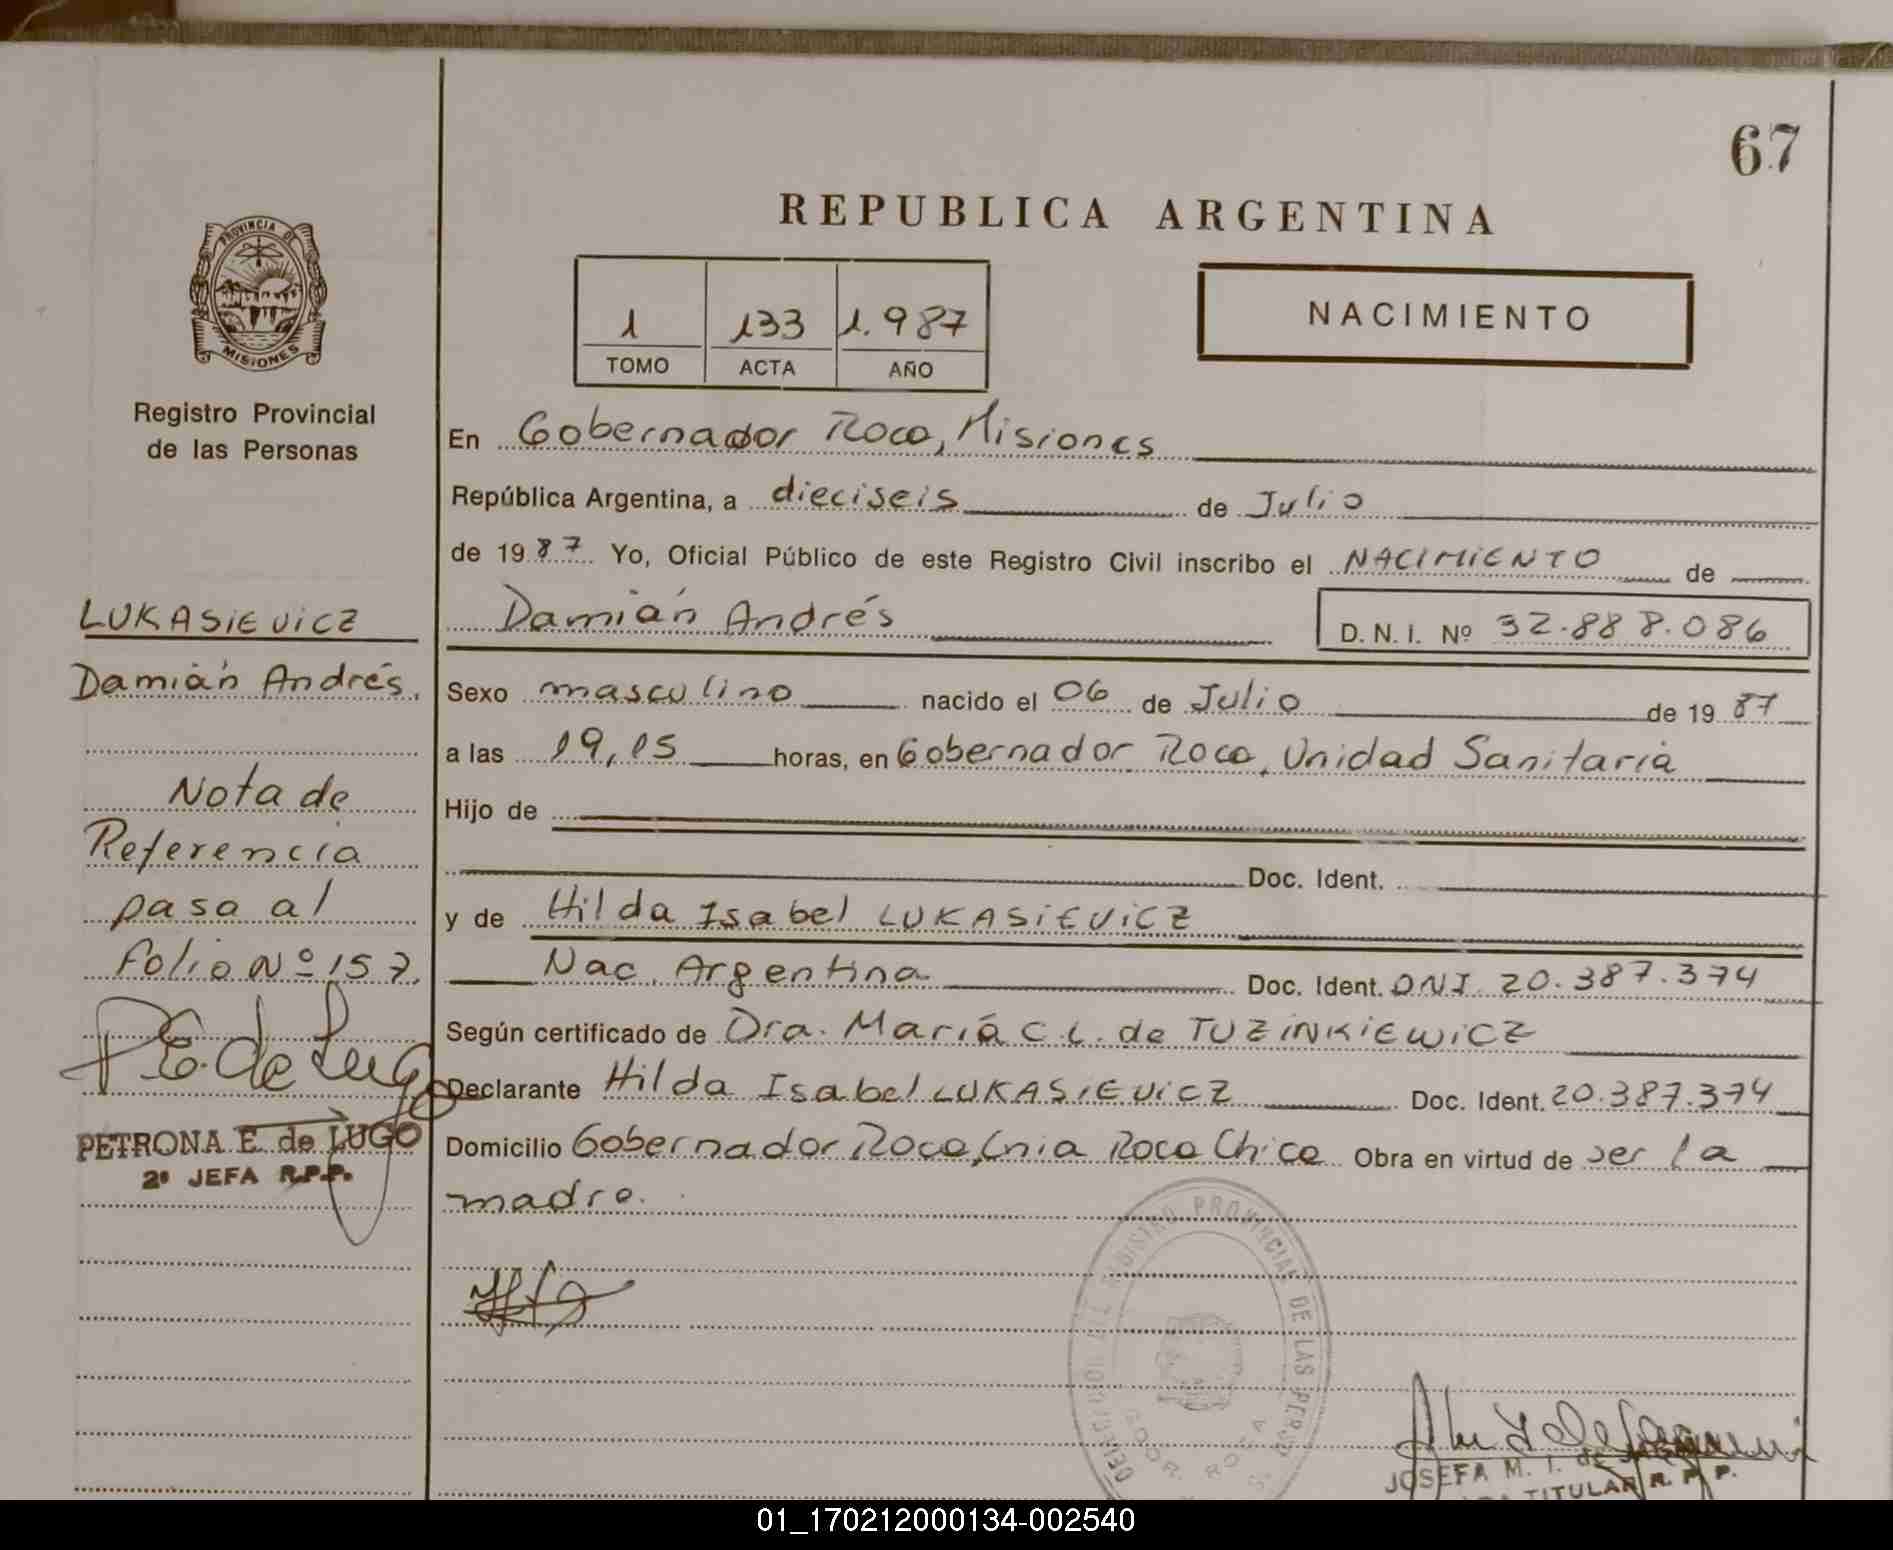 67
REPUBLICA ARGENTINA
PROVINCIA DE
MISIONES
Registro Provincial
de las Personas
1 133 1.987
TOMO ACTA AÑO
NACIMIENTO
En Gobernador Roca, Misiones
República Argentina, a dieciseis de Julio
de 1987 Yo, Oficial Público de este Registro Civil inscribo el NACIMIENTO de
Damián Andrés
D. N. I. Nº 32.888.086
Sexo masculino nacido el 06 de Julio de 1987
a las 19,15 horas, en Gobernador Roca, Unidad Sanitaria
Hijo de
Doc. Ident.
y de Hilda Isabel LUKASIEVICZ
Nac. Argentina Doc. Ident. DNI. 20.387.374
Según certificado de Dra. María C.L. de TUZINKIEWICZ
Declarante Hilda Isabel LUKASIEVICZ Doc. Ident. 20.387.374
Domicilio Gobernador Roca, Cnia Roca Chica Obra en virtud de ser la
madre.
LUKASIEVICZ
Damián Andrés.
Nota de
Referencia
pasa al
folio Nº 157.
P.E. de Lugo
PETRONA E. de LUGO
2ª JEFA R.P.P.
REGISTRO PROVINCIAL DE LAS PERSO
GDOR. ROCA
JOSEFA M. I. de
TITULAR R. P. P.
01_170212000134-002540